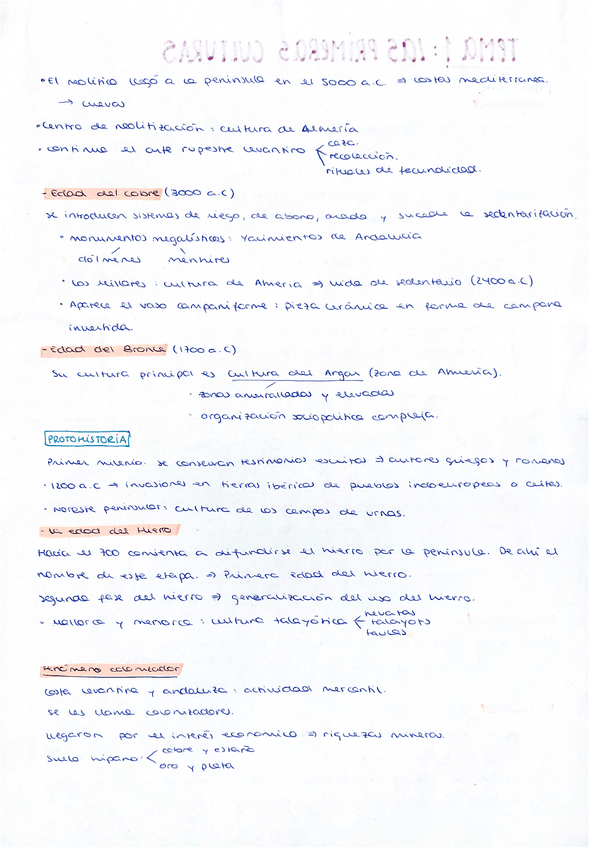 TEMA 1: LAS PRIMERAS CULTURAS
• El neolítico llegó a la península en el 5000 a.C. ⇒ costas mediterranea.
→ cuevas
• Centro de neolitización: cultura de Almería
• continua el arte rupestre levantino
caza.
recolección.
rituales de fecundidad.
- Edad del cobre (3000 a.C)
se introducen sistemas de riego, de abono, arado y sucede la sedentarización.
• monumentos megalísticos: yacimientos de Andalucía
dólmenes menhires
• Los Millares: cultura de Almeria ⇒ vida de sedentario (2400 a.C)
• Aparece el vaso campaniforme: pieza cerámica en forma de campana
invertida.
- Edad del Bronce (1700 a.C)
Su cultura principal es Cultura del Argar (zona de Almería).
• zonas amuralladas y elevadas
• organización sociopolítica compleja.
PROTOHISTORIA
Primer milenio. se conservan testimonios escritos ⇒ autores griegos y romanos
• 1200 a.C → invasiones en tierras ibérica de pueblos indoeuropeos o celtas.
• Noreste peninsular: cultura de los campos de urnas.
- La edad del Hierro
Hacia el 700 comienza a difundirse el hierro por la península. De ahí el
nombre de este etapa. ⇒ Primera edad del hierro.
Segunda fase del hierro ⇒ generalización del uso del hierro.
• Mallorca y menorca: cultura talayótica
nevatas
talayots
taulas
Fenómeno colonizador
Costa levantina y andaluza: actividad mercantil.
Se les llama colonizadores.
llegaron por el interés económico ⇒ riquezas mineras.
Suelo hipano:
cobre y estaño
oro y plata